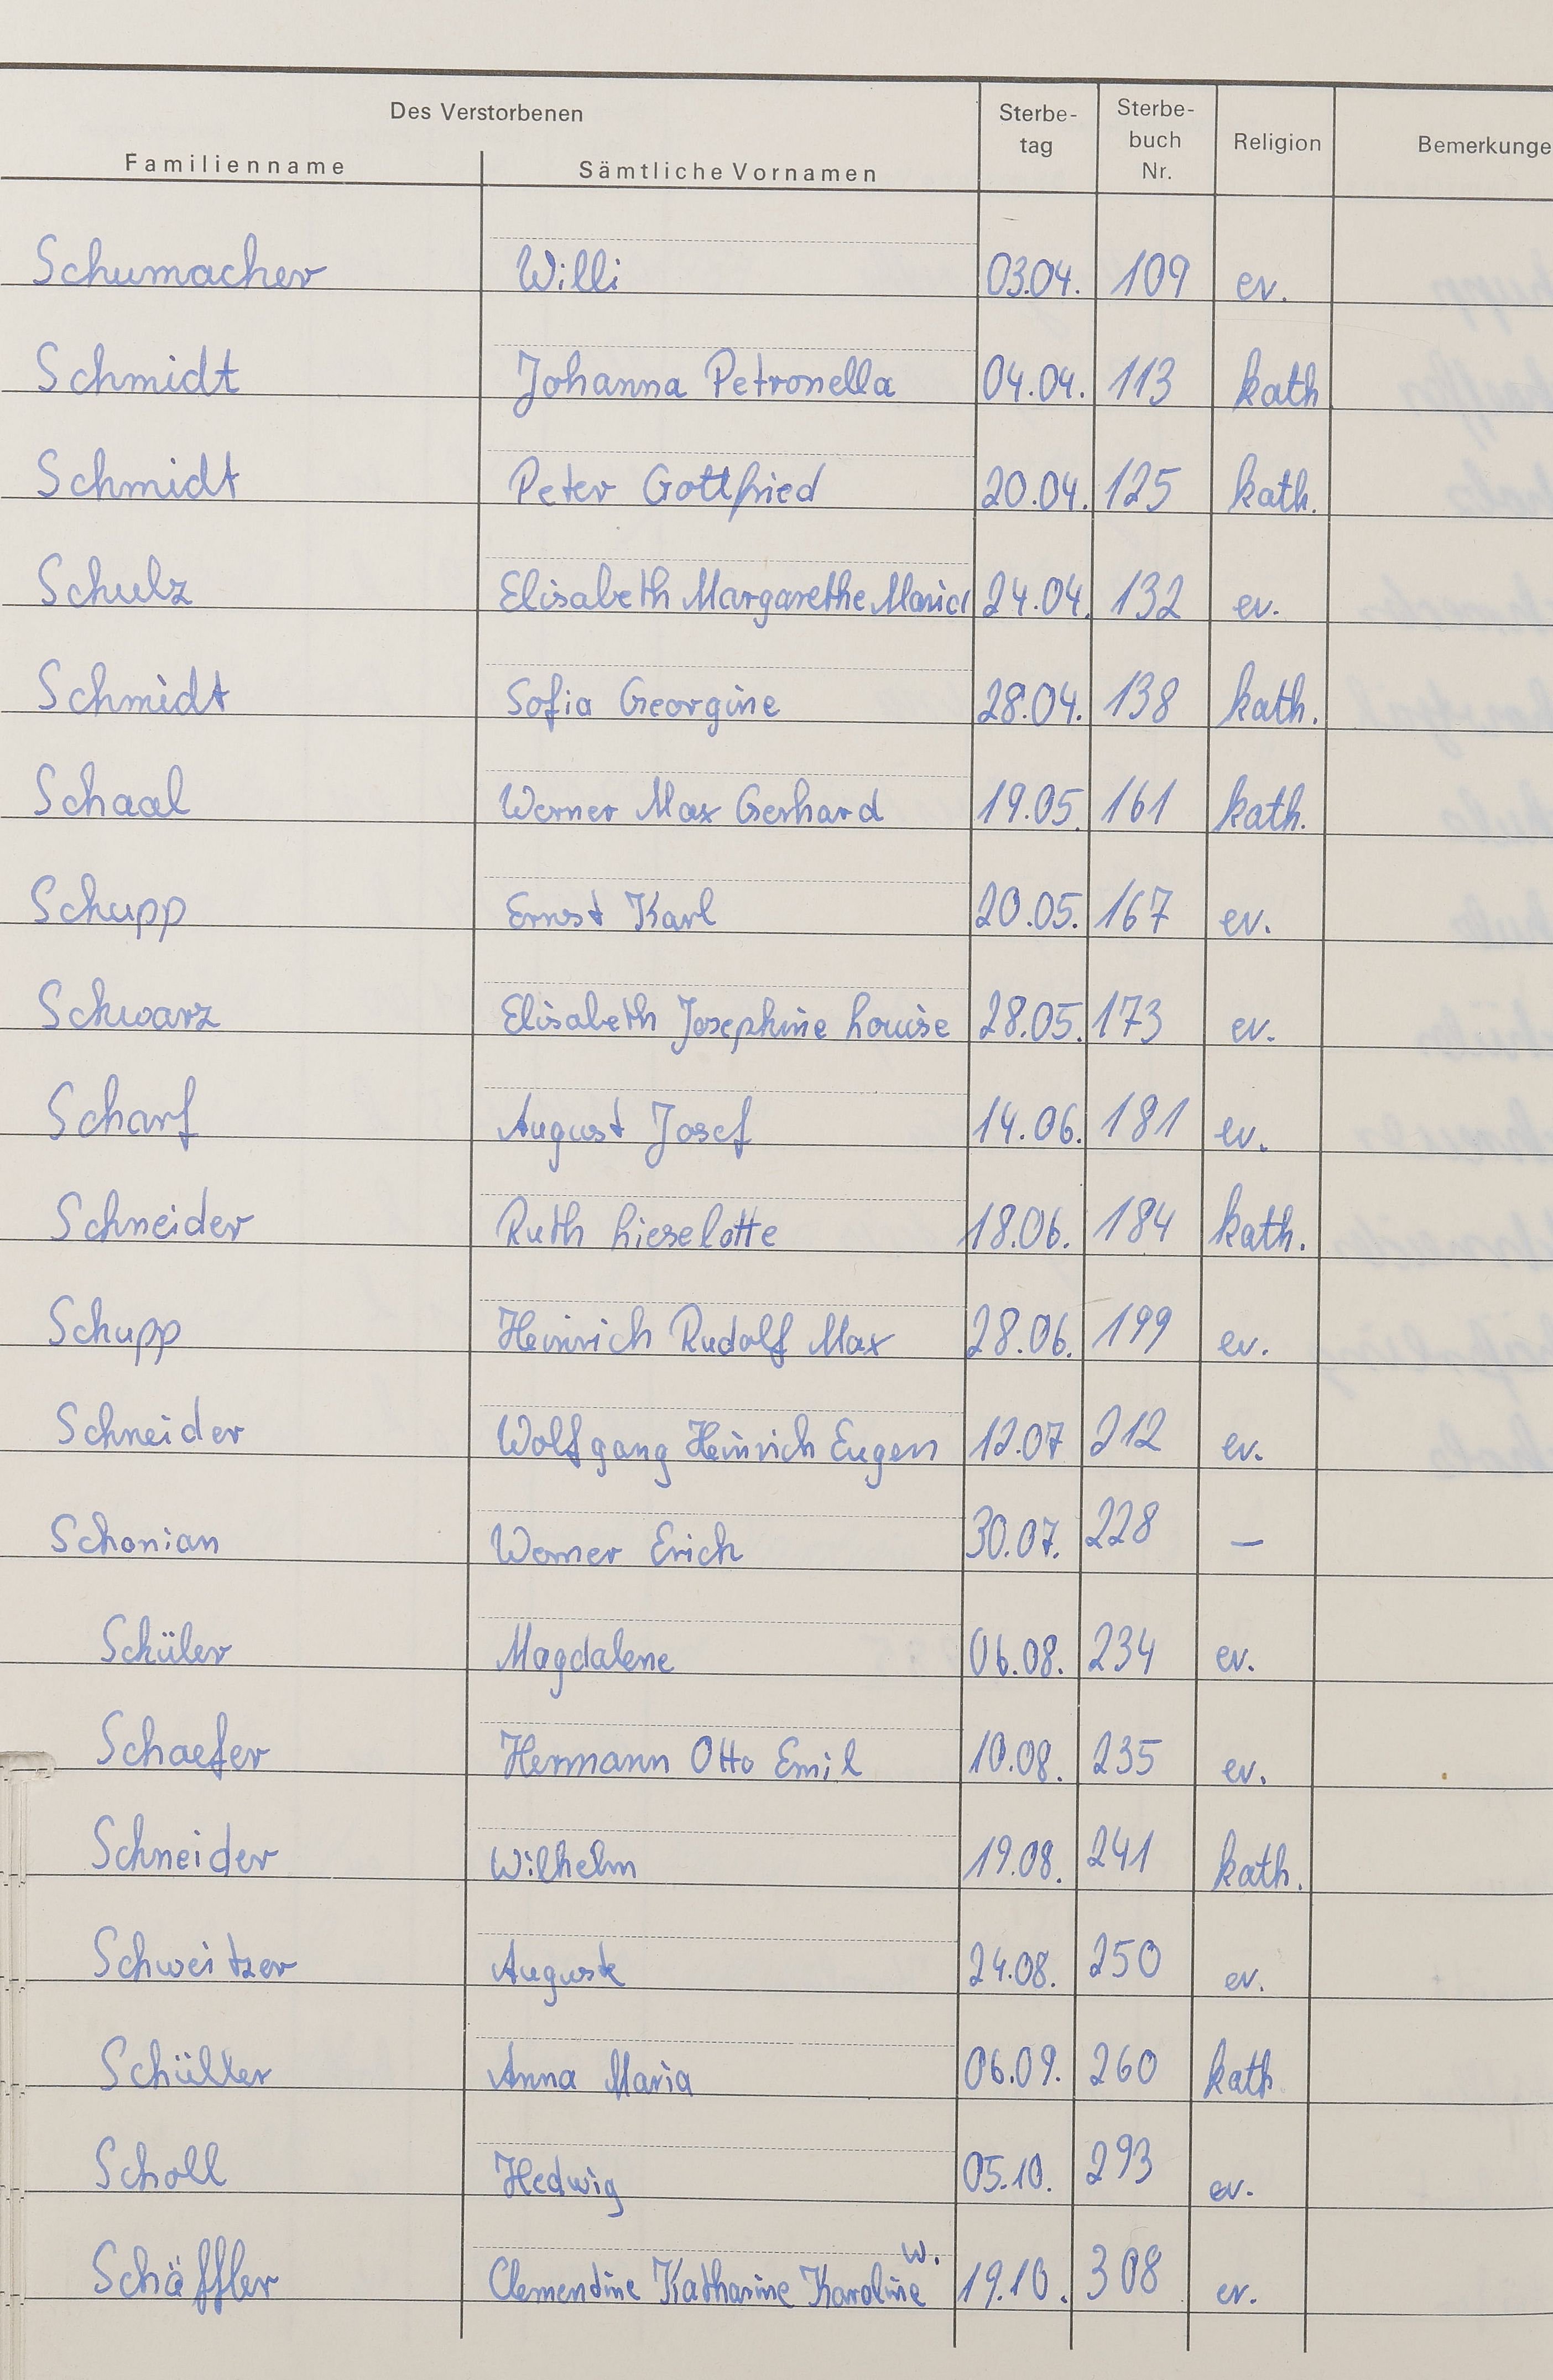 Des Verstorbenen
Familienname Sämtliche Vornamen Sterbe-tag Sterbe-buch Nr. Religion Bemerkunge
Schumacher Willi 03.04. 109 ev.
Schmidt Johanna Petronella 04.04. 113 kath
Schmidt Peter Gottfried 20.04. 125 kath.
Schulz Elisabeth Margarethe Maria 24.04. 132 ev.
Schmidt Sofia Georgine 28.04. 138 kath.
Schaal Werner Max Gerhard 19.05. 161 kath.
Schupp Ernst Karl 20.05. 167 ev.
Schwarz Elisabeth Josephine Louise 28.05. 173 ev.
Scharf August Josef 14.06. 181 ev.
Schneider Ruth Lieselotte 18.06. 184 kath.
Schupp Heinrich Rudolf Max 28.06. 199 ev.
Schneider Wolfgang Heinrich Eugen 12.07 212 ev.
Schonian Werner Erich 30.07. 228 —
Schüler Magdalene 06.08. 234 ev.
Schaefer Hermann Otto Emil 10.08. 235 ev.
Schneider Wilhelm 19.08. 241 kath.
Schweitzer Auguste 24.08. 250 ev.
Schüller Anna Maria 06.09. 260 kath
Scholl Hedwig 05.10. 293 ev.
Schäffler Clementine Katharine Karoline W. 19.10. 308 ev.